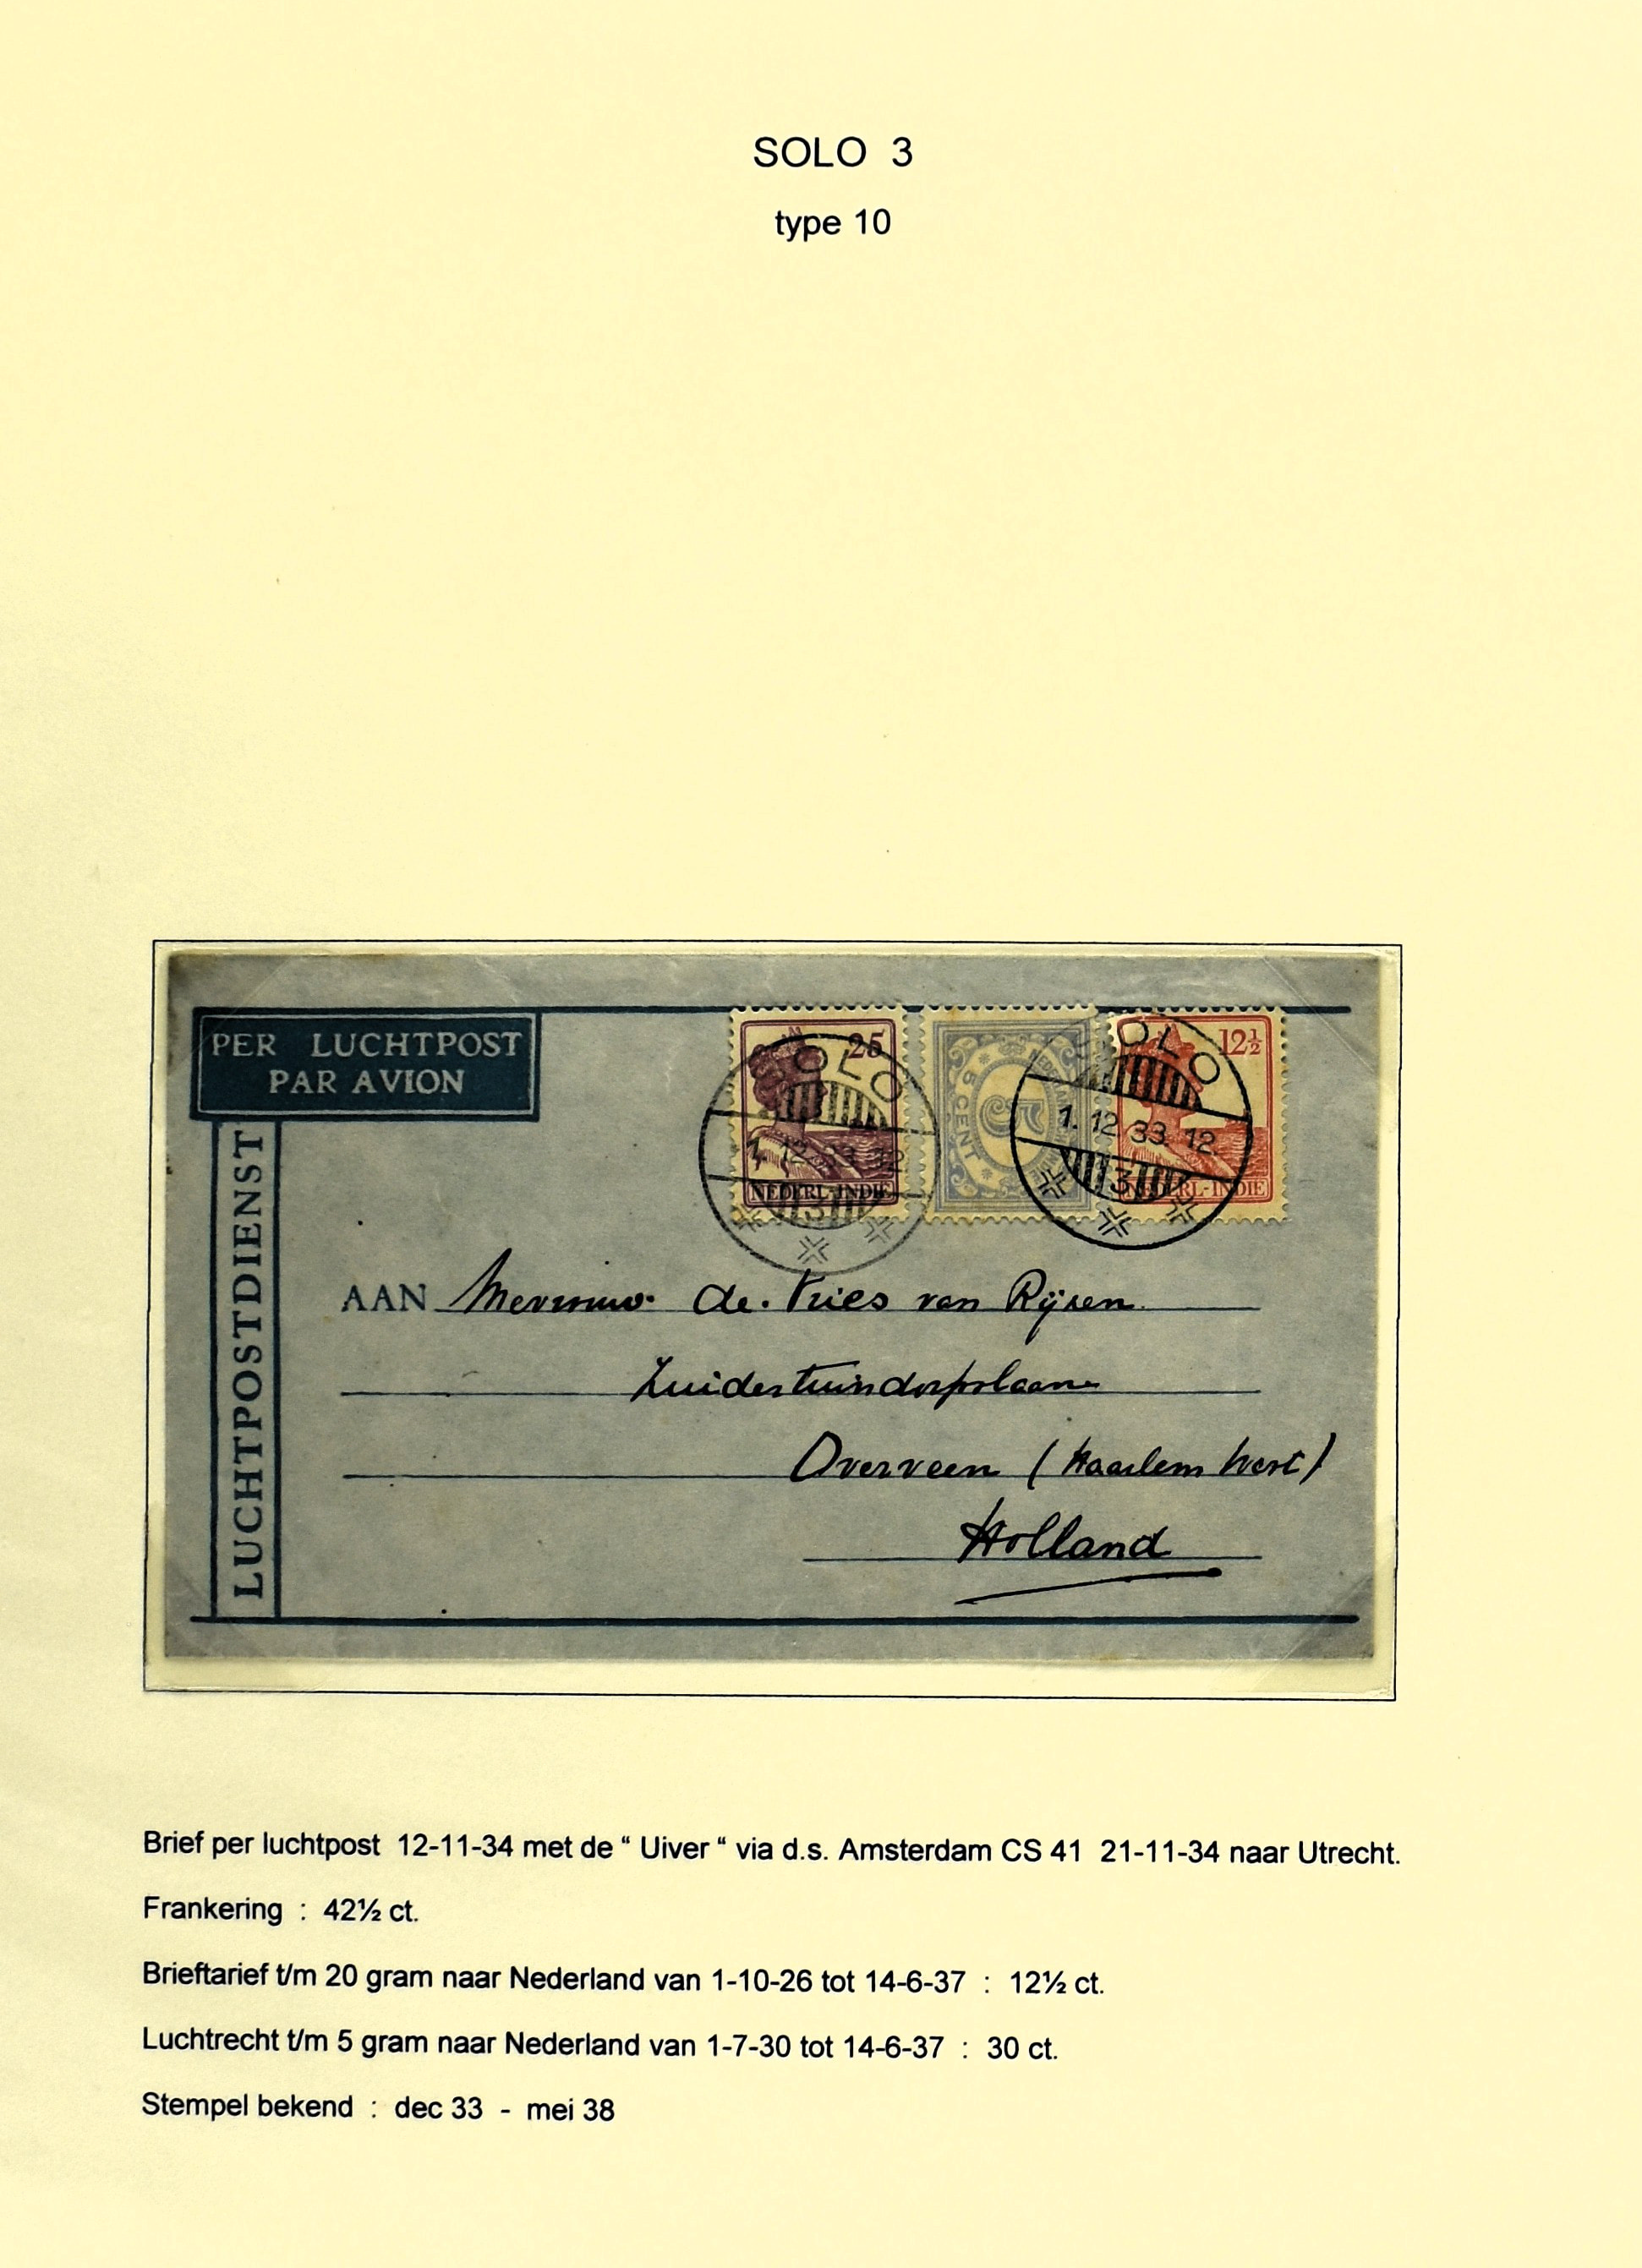 SOLO 3
type 10
PER LUCHTPOST
PAR AVION
LUCHTPOSTDIENST
25
NEDERL-INDIE
SOLO
1.12.33.12
3
5
CENT
12½
NEDERL-INDIE
SOLO
1.12.33.12
3
AAN Mevrouw. de. Vries van Rijsen.
Zuidertuindorpslaan
Overveen (Haarlem West)
Holland
Brief per luchtpost 12-11-34 met de “ Uiver “ via d.s. Amsterdam CS 41 21-11-34 naar Utrecht.
Frankering : 42½ ct.
Brieftarief t/m 20 gram naar Nederland van 1-10-26 tot 14-6-37 : 12½ ct.
Luchtrecht t/m 5 gram naar Nederland van 1-7-30 tot 14-6-37 : 30 ct.
Stempel bekend : dec 33 - mei 38